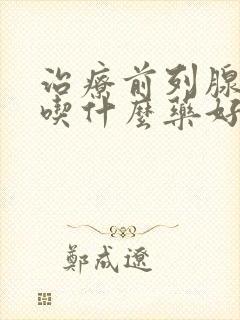 治療前列腺
喫什麼藥好
鄭成遼